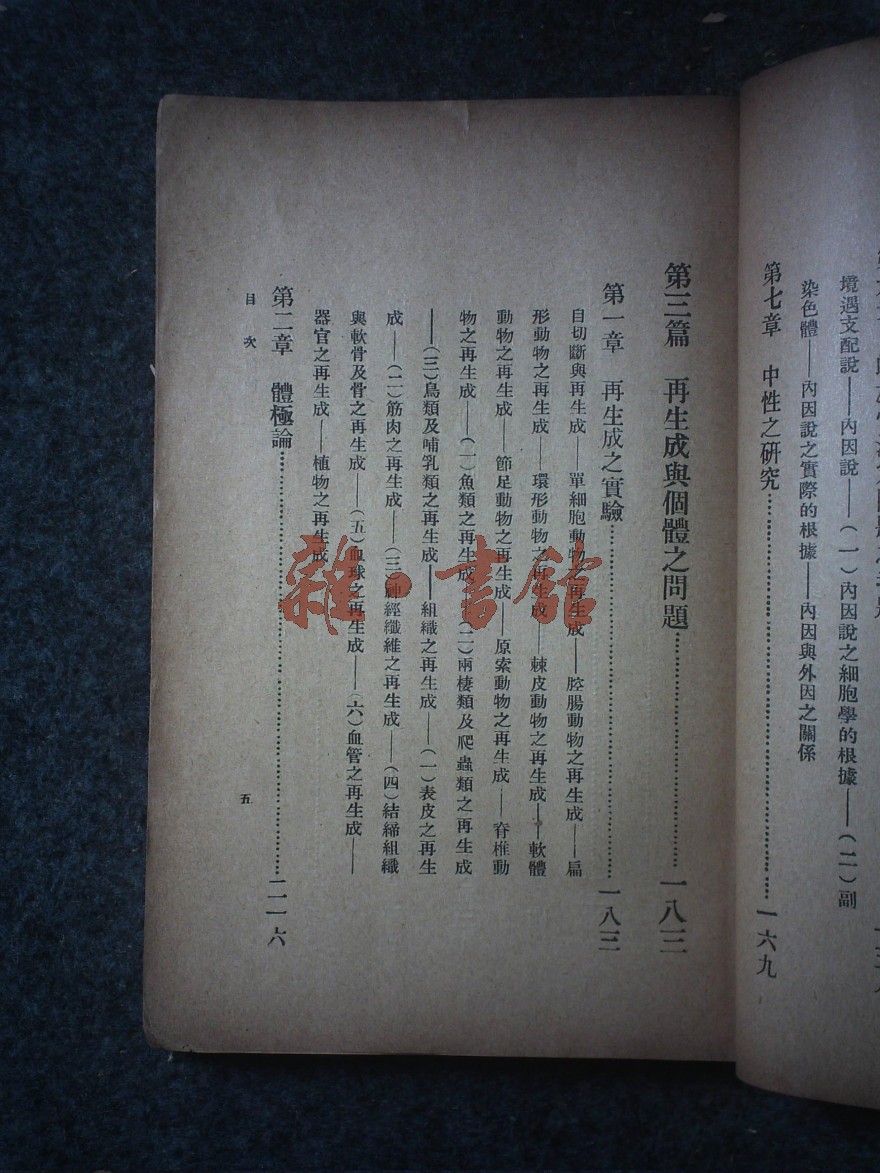 境遇支配說——內因說——(一)內因說之細胞學的根據——(二)副
染色體——內因說之實際的根據——內因與外因之關係
第七章　中性之研究……一六九
第三篇　再生成與個體之問題……一八三
第一章　再生成之實驗……一八三
自切斷與再生成——單細胞動物之再生成——腔腸動物之再生成——扁
形動物之再生成——環形動物之再生成——棘皮動物之再生成——軟體
動物之再生成——節足動物之再生成——原索動物之再生成——脊椎動
物之再生成——(一)魚類之再生成　(二)兩棲類及爬蟲類之再生成
——(三)鳥類及哺乳類之再生成——組織之再生成——(一)表皮之再生
成——(二)筋肉之再生成——(三)神經纖維之再生成——(四)結締組織
與軟骨及骨之再生成——(五)血球之再生成——(六)血管之再生成——
器官之再生成——植物之再生成
第二章　體極論……二一六
目次
五
雜·書館